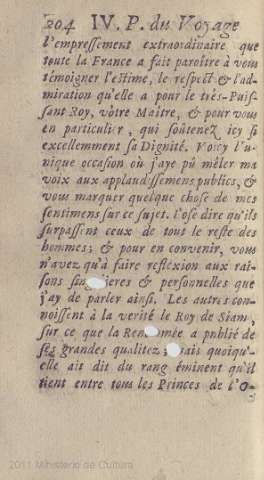 204 IV. P. du Voyage
l'empreſſement extraordinaire, que
toute la France a fait paroître à vous
témoigner l'eſtime, le reſpect & l'ad-
miration qu'elle a pour le très-Puiſ-
ſant Roy, vôtre Maitre, & pour vous
en particulier, qui ſoûtenez icy ſi
excellemment ſa Dignité. Voicy l'u-
nique occaſion où j'aye pû mêler ma
voix aux applaudiſſemens publics, &
vous marquer quelque choſe de mes
ſentimens sur ce ſujet. J'oſe dire qu'ils
ſurpaſſent ceux de tout le reſte des
hommes; & pour en convenir, vous
n'avez qu'à faire reflexion aux rai-
ſons & perſonnelles que
j'ay de parler ainſi. Les autres con-
noiſſent à la verité le Roy de Siam,
ſur ce que la a publié de
ſes grandes qualitez; quoiqu'-
elle ait dit du rang éminent qu'il
tient entre tous les Princes de l'O-
2011 Ministerio de Cultura